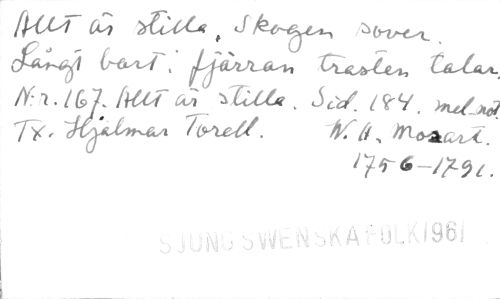 Allt är stilla, Skogen sover.
Långt bort i fjärran trasten talar.
N:r. 167. Allt är stilla. Sid. 184. mel.not.
Tx. Hjalmar Torell. W. A. Mozart.
1756-1791.
SJUNG SWENSKA FOLK 1961